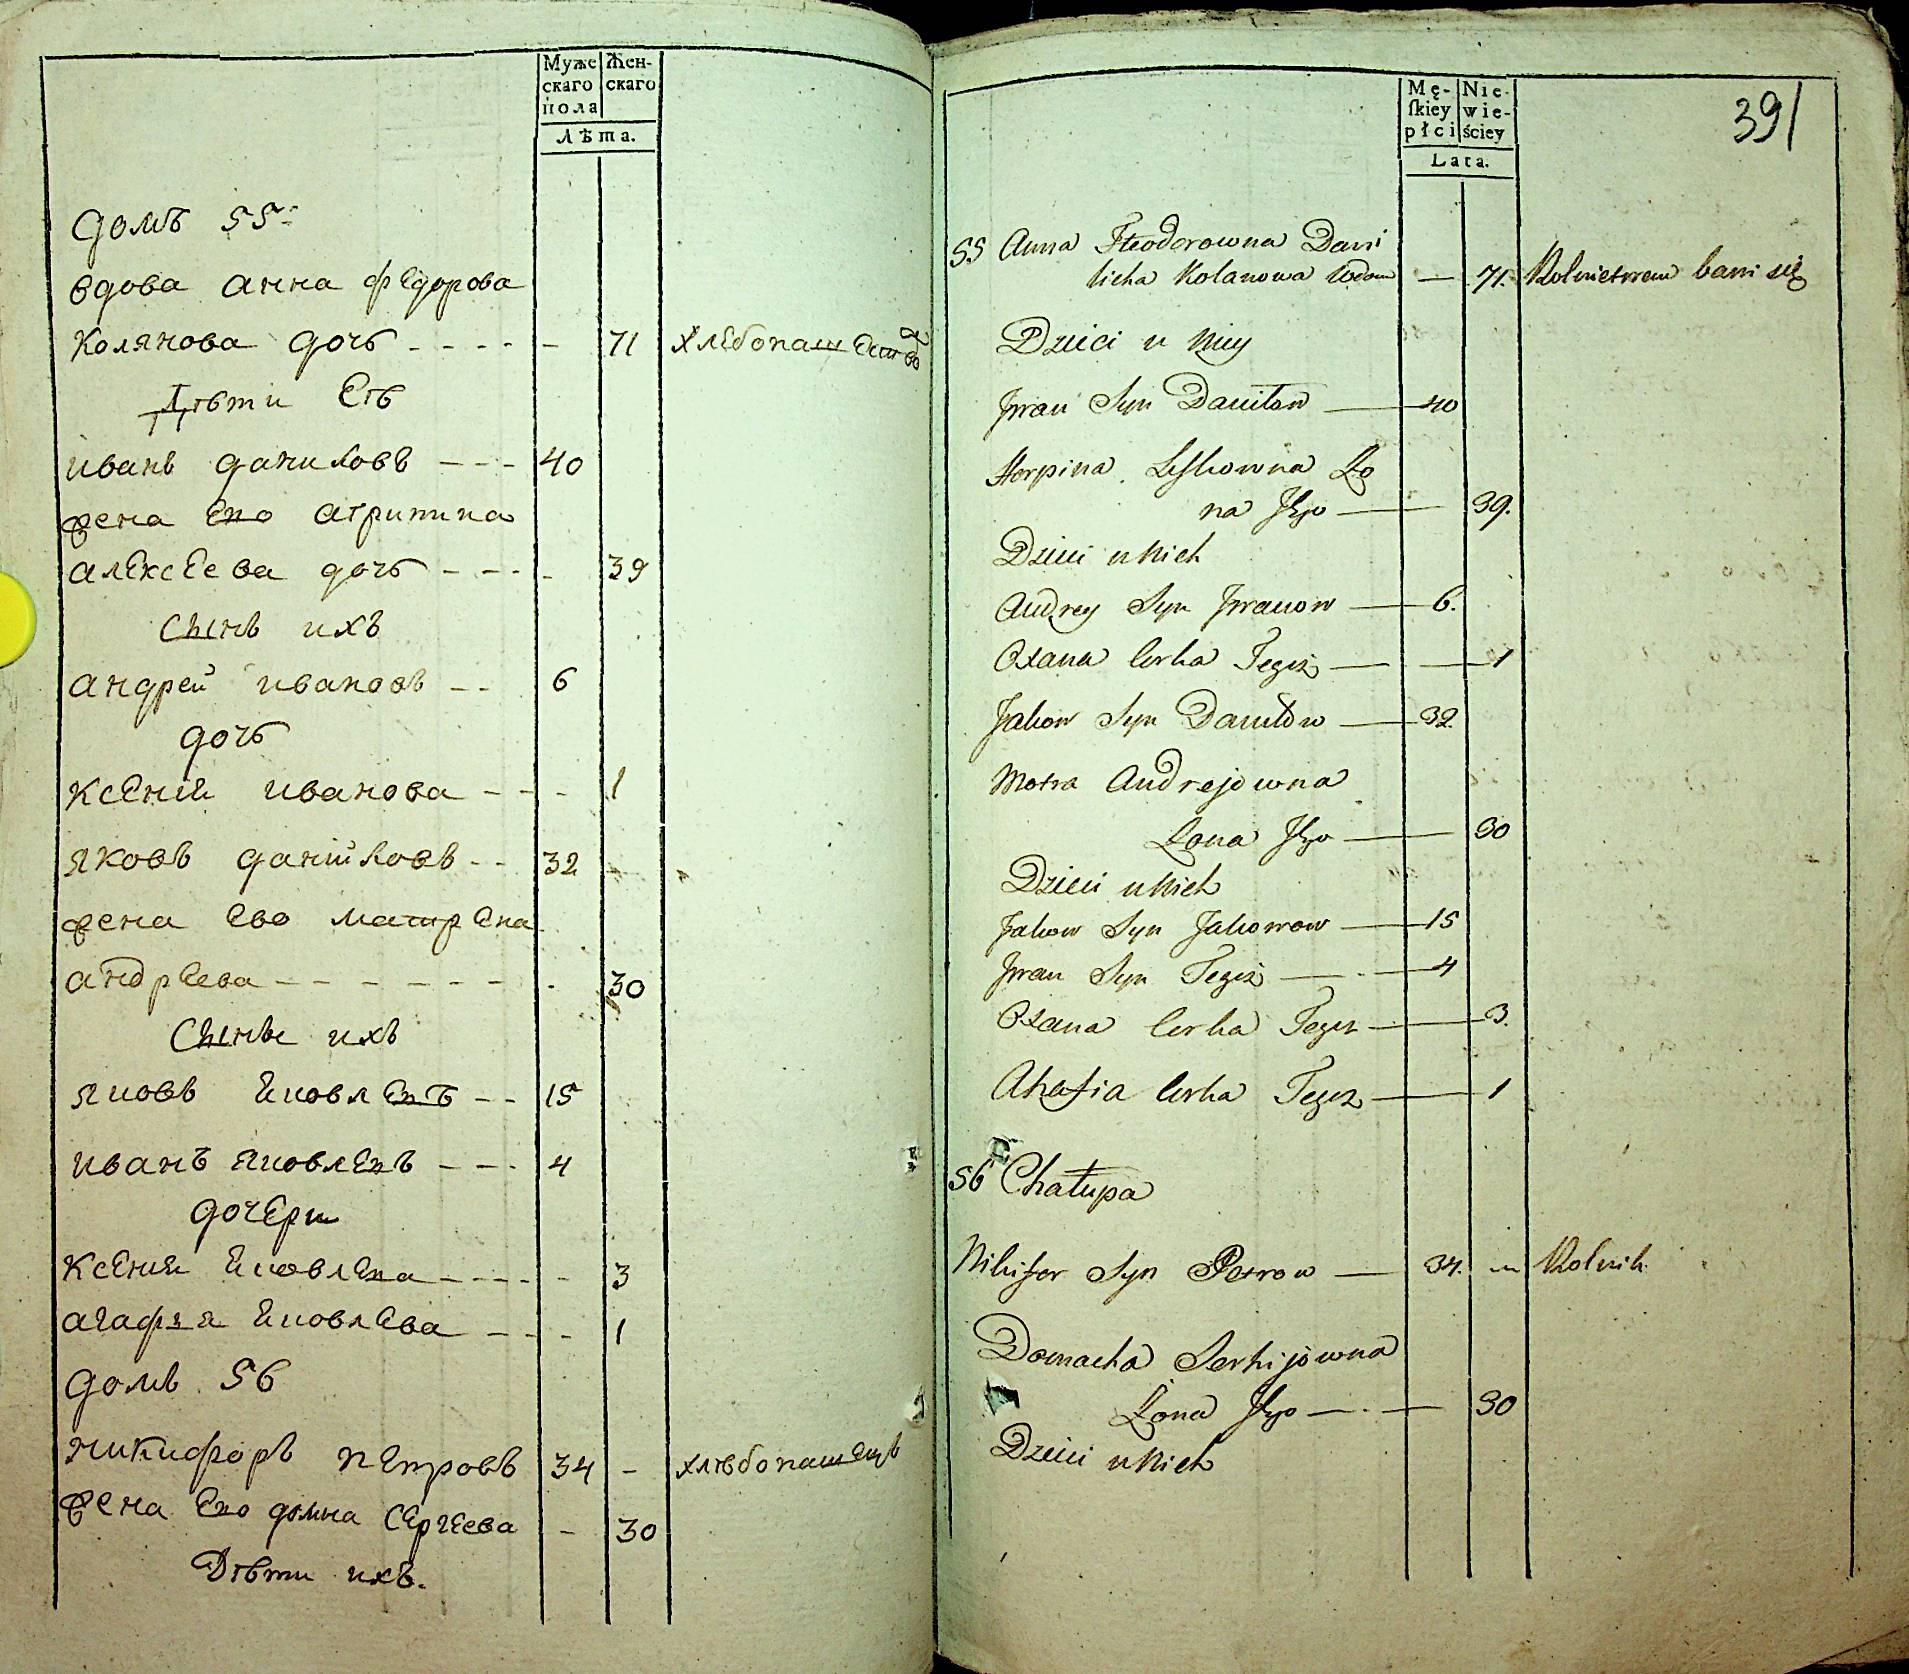 Муже
скаго
пола
Жен-
скаго
Лѣта.
домъ 55:
вдова анна федорова
колянова дочь - - - - - 71 хлебопашество
Дѣти Еѣ
иванъ даниловъ - - - 40
жена Ево агрипина
алексеева дочь - - - - 39
Сынъ ихъ
андрей ивановъ - - 6
дочь
ксения иванова - - - 1
яковъ даниловъ - - 32
жена Ево матрена
андреева - - - - - - - 30
Сыны ихъ
яковъ яковлевъ - - 15
иванъ яковлевъ - - - 4
дочери
ксения яковлева - - - - - 3
агафия яковлева - - - 1
домъ 56
никифоръ петровъ 34 - хлѣбопашецъ
жена Ево домна сергеева - 30
Дѣти ихъ.
Mę-
ſkiey
płci
Nie-
wie-
ściey
Lata.
391
55 Anna Fteodorowna Dani
licha Kolanowa wdowa — 71. Rolnictwem bawi się
Dzieci u Niey
Jwan Syn Daniłow — 40
Horpina Leskowna Żo
na Jego — 39.
Dzieci u Nich
Andrey Syn Jwanow — 6.
Oxana Corka Tegoż — 1
Jakow Syn Daniłow — 32.
Motra Andrejowna
Żona Jego — 30
Dzieci u Nich
Jakow Syn Jakowow — 15
Jwan Syn Tegoż — 4
Oxana Corka Tegoż — 3.
Ahafia Corka Tegoż — 1
56 Chałupa
Nikifor Syn Petrow — 34. — Rolnik
Domacha Serhijowna
Żona Jego — 30
Dzieci u Nich